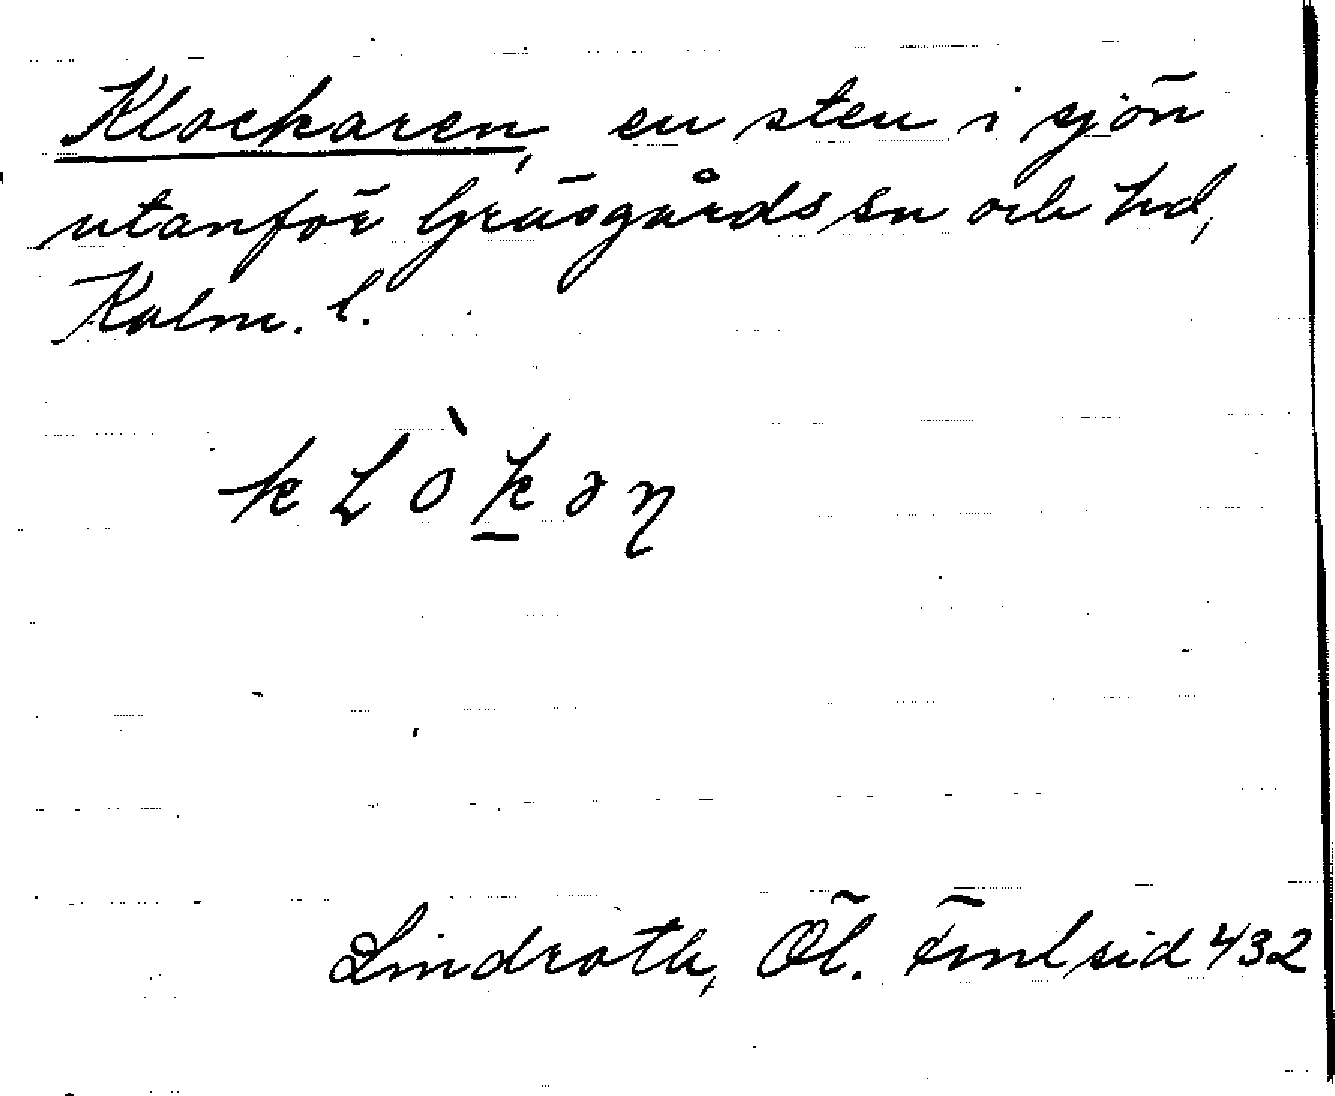 Klockaren, en sten i sjön
utanför Gräsgårds sn och hd,
Kalm. l.
kLòḵəŋ
Lindroth, Öl. Fml sid 432